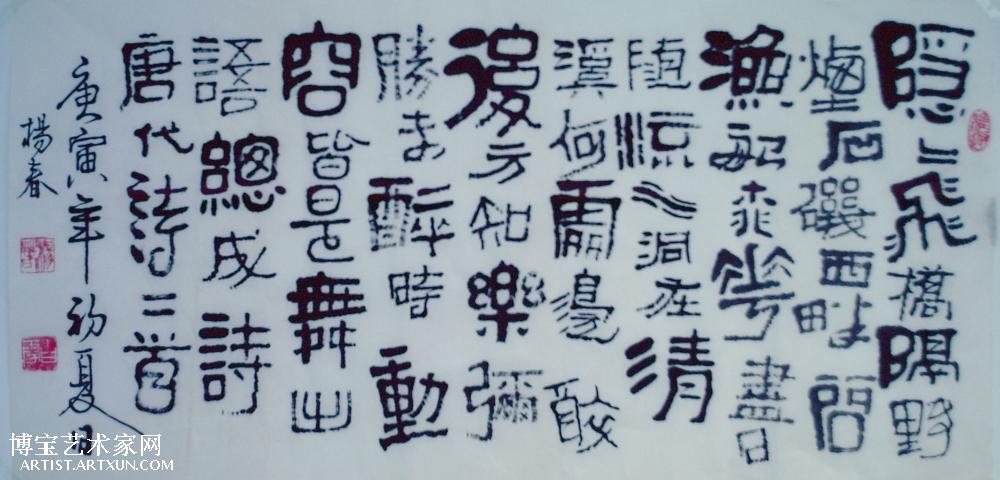 隐〻飛橋隔野
煙石磯西畔問
漁船桃花盡日
隨流水洞在清
溪何處邊醉
後方知樂彌
勝未醉時動
容皆是舞出
語總成詩
唐代詩二首
庚寅年初夏日
楊春
博宝艺术家网
ARTIST.ARTXUN.COM